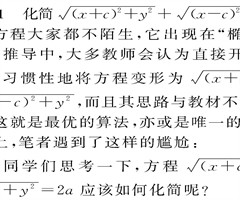 1 化简 √(x+c)²+y² + √(x-c)²
方程大家都不陌生,它出现在“椭
推导中,大多教师会认为直接开
习惯性地将方程变形为 √(x+
-c)²+y²,而且其思路与教材不
这就是最优的算法,亦或是唯一的
上,笔者遇到了这样的尴尬:
同学们思考一下,方程 √(x+c
+y²=2a 应该如何化简呢?